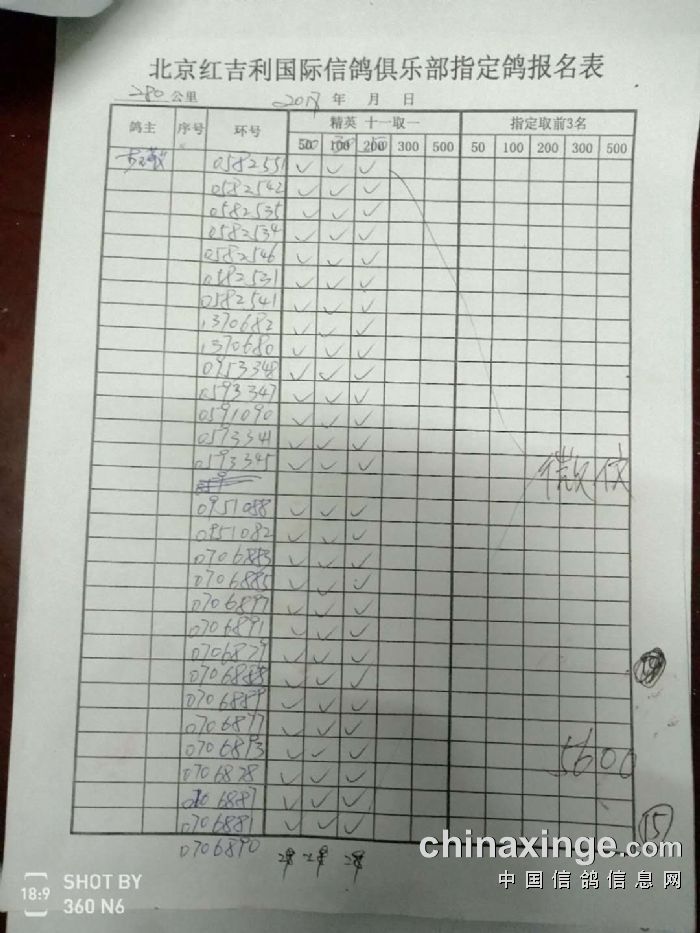 北京红吉利国际信鸽俱乐部指定鸽报名表
280 公里 2018 年 月 日
鸽主 序号 环号 精英 十一取一 指定取前3名
50 100 200 300 500 50 100 200 300 500
0582551 ✓ ✓ ✓
0582542 ✓ ✓ ✓
0582535 ✓ ✓ ✓
0582534 ✓ ✓ ✓
0582546 ✓ ✓ ✓
0582531 ✓ ✓ ✓
0582541 ✓ ✓ ✓
1370682 ✓ ✓ ✓
1370680 ✓ ✓ ✓
0953348 ✓ ✓ ✓
0593347 ✓ ✓ ✓
0591090 ✓ ✓ ✓
0593341 ✓ ✓ ✓
0593345 ✓ ✓ ✓
微信
0951088 ✓ ✓ ✓
0951082 ✓ ✓ ✓
0706883 ✓ ✓ ✓
0706885 ✓ ✓ ✓
0706897 ✓ ✓ ✓
0706891 ✓ ✓ ✓
0706879 ✓ ✓ ✓
0706888 ✓ ✓ ✓
0706889 ✓ ✓ ✓
0706877 ✓ ✓ ✓
0706893 ✓ ✓ ✓
5600
0706878 ✓ ✓ ✓
0706887 ✓ ✓ ✓
0706881 ✓ ✓ ✓
15
0706890 28 28 28
chinaxinge.com
中国信鸽信息网
18:9 SHOT BY
360 N6